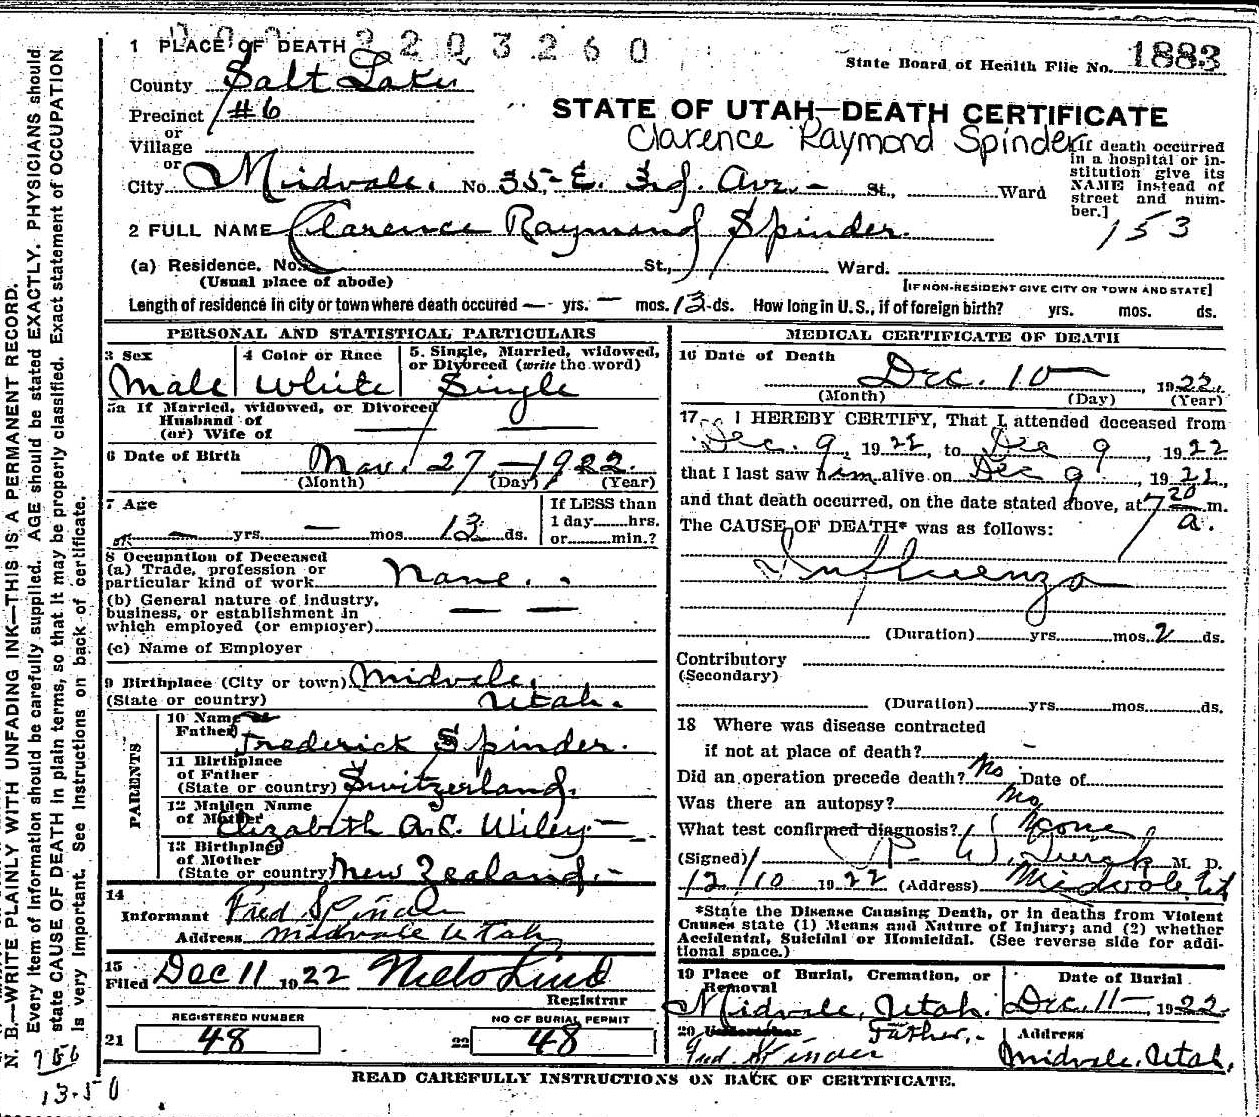 2203260
1 PLACE OF DEATH
State Board of Health File No. 1883
County Salt Lake
Precinct #6
or
Village
or
STATE OF UTAH—DEATH CERTIFICATE
Clarence Raymond Spinder
City Midvale. No. 35-E. 3rd. Ave.- St., Ward
[If death occurred
in a hospital or in-
stitution give its
NAME instead of
street and num-
ber.]
153
2 FULL NAME Clarence Raymond Spinder.
(a) Residence. No. St., Ward.
(Usual place of abode)
[IF NON-RESIDENT GIVE CITY OR TOWN AND STATE]
Length of residence in city or town where death occured — yrs. — mos. 13 ds. How long in U.S., if of foreign birth? yrs. mos. ds.
PERSONAL AND STATISTICAL PARTICULARS
3 Sex
Male
4 Color or Race
White
5. Single, Married, widowed,
or Divorced (write the word)
Single
5a If Married, widowed, or Divorced
Husband of
(or) Wife of
6 Date of Birth Nov. 27, —1922.
(Month) (Day) (Year)
7 Age
— yrs. — mos. 13 ds.
If LESS than
1 day hrs.
or min.?
8 Occupation of Deceased
(a) Trade, profession or
particular kind of work None.
(b) General nature of industry,
business, or establishment in
which employed (or employer)
(c) Name of Employer
9 Birthplace (City or town) Midvale,
(State or country) Utah.
PARENTS
10 Name
Father Frederick Spinder.
11 Birthplace
of Father
(State or country) Switzerland.
12 Maiden Name
of Mother Elizabeth A.C. Wiley—
13 Birthplace
of Mother
(State or country) New Zealand.-
14
Informant Fred Spinder
Address Midvale Utah
15
Filed Dec 11 1922 Niels Lind
Registrar
REGISTERED NUMBER
21 48
NO OF BURIAL PERMIT
22 48
MEDICAL CERTIFICATE OF DEATH
16 Date of Death
Dec. 10— , 1922.
(Month) (Day) (Year)
17 I HEREBY CERTIFY, That I attended deceased from
Dec. 9, 1922, to Dec 9, 1922
that I last saw him alive on Dec 9, 1922,
and that death occurred, on the date stated above, at 7 20 a. m.
The CAUSE OF DEATH* was as follows:
Influenza
(Duration) yrs. mos. 2 ds.
Contributory
(Secondary)
(Duration) yrs. mos. ds.
18 Where was disease contracted
if not at place of death? -
Did an operation precede death? No Date of
Was there an autopsy? No
What test confirmed diagnosis? None
(Signed) M. D.
12/10 1922 (Address) Midvale Ut
*State the Disease Causing Death, or in deaths from Violent
Causes state (1) Means and Nature of Injury; and (2) whether
Accidental, Suicidal or Homicidal. (See reverse side for addi-
tional space.)
19 Place of Burial, Cremation, or
Removal
Midvale, Utah.
Date of Burial
Dec. 11— 1922.
20 Undertaker Father.-
Fred Spinder
Address
Midvale, Utah.
READ CAREFULLY INSTRUCTIONS ON BACK OF CERTIFICATE.
N. B.—WRITE PLAINLY WITH UNFADING INK—THIS IS A PERMANENT RECORD.
Every item of information should be carefully supplied. AGE should be stated EXACTLY. PHYSICIANS should
state CAUSE OF DEATH in plain terms, so that it may be properly classified. Exact statement of OCCUPATION
is very important. See Instructions on back of certificate.
13.50